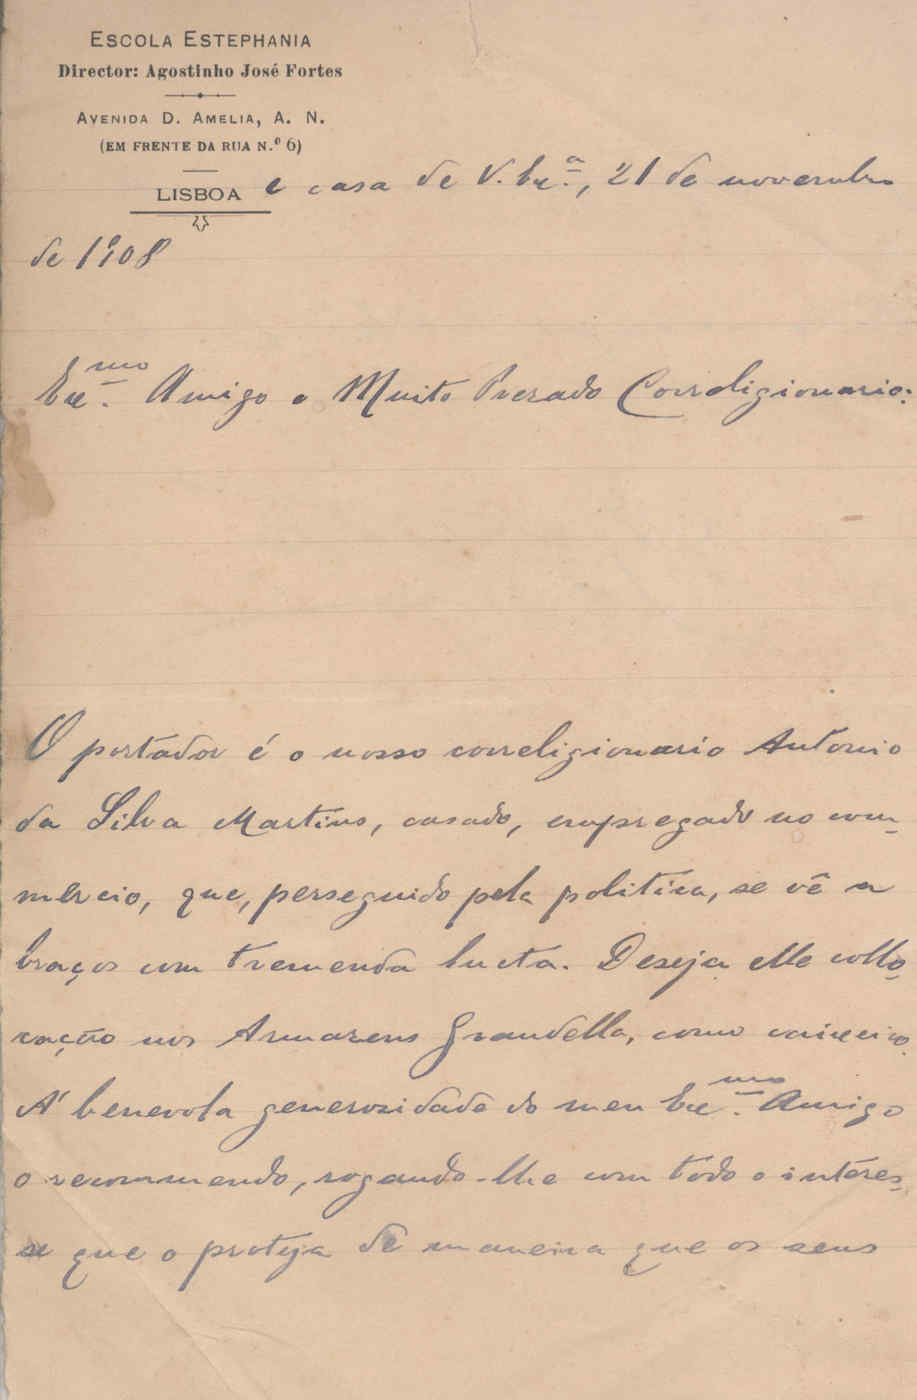 ESCOLA ESTEPHANIA
Director: Agostinho José Fortes
AVENIDA D. AMELIA, A. N.
(EM FRENTE DA RUA N.º 6)
LISBOA e casa de V. Ex.ª, 21 de novembro
de 1908
Ex.mo Amigo e Muito Presado Correligionario:
O portador é o nosso correligionario Antonio
da Silva Martins, casado, empregado no com-
mercio, que, perseguido pela politica, se vê a
braços com tremenda lucta. Deseja elle collo-
cação nos Armazens Grandella, como caixeiro.
Á benevola generosidade do meu Ex.mo Amigo
o recommendo, rogando-lhe com todo o interes-
se que o proteja de maneira que os seus